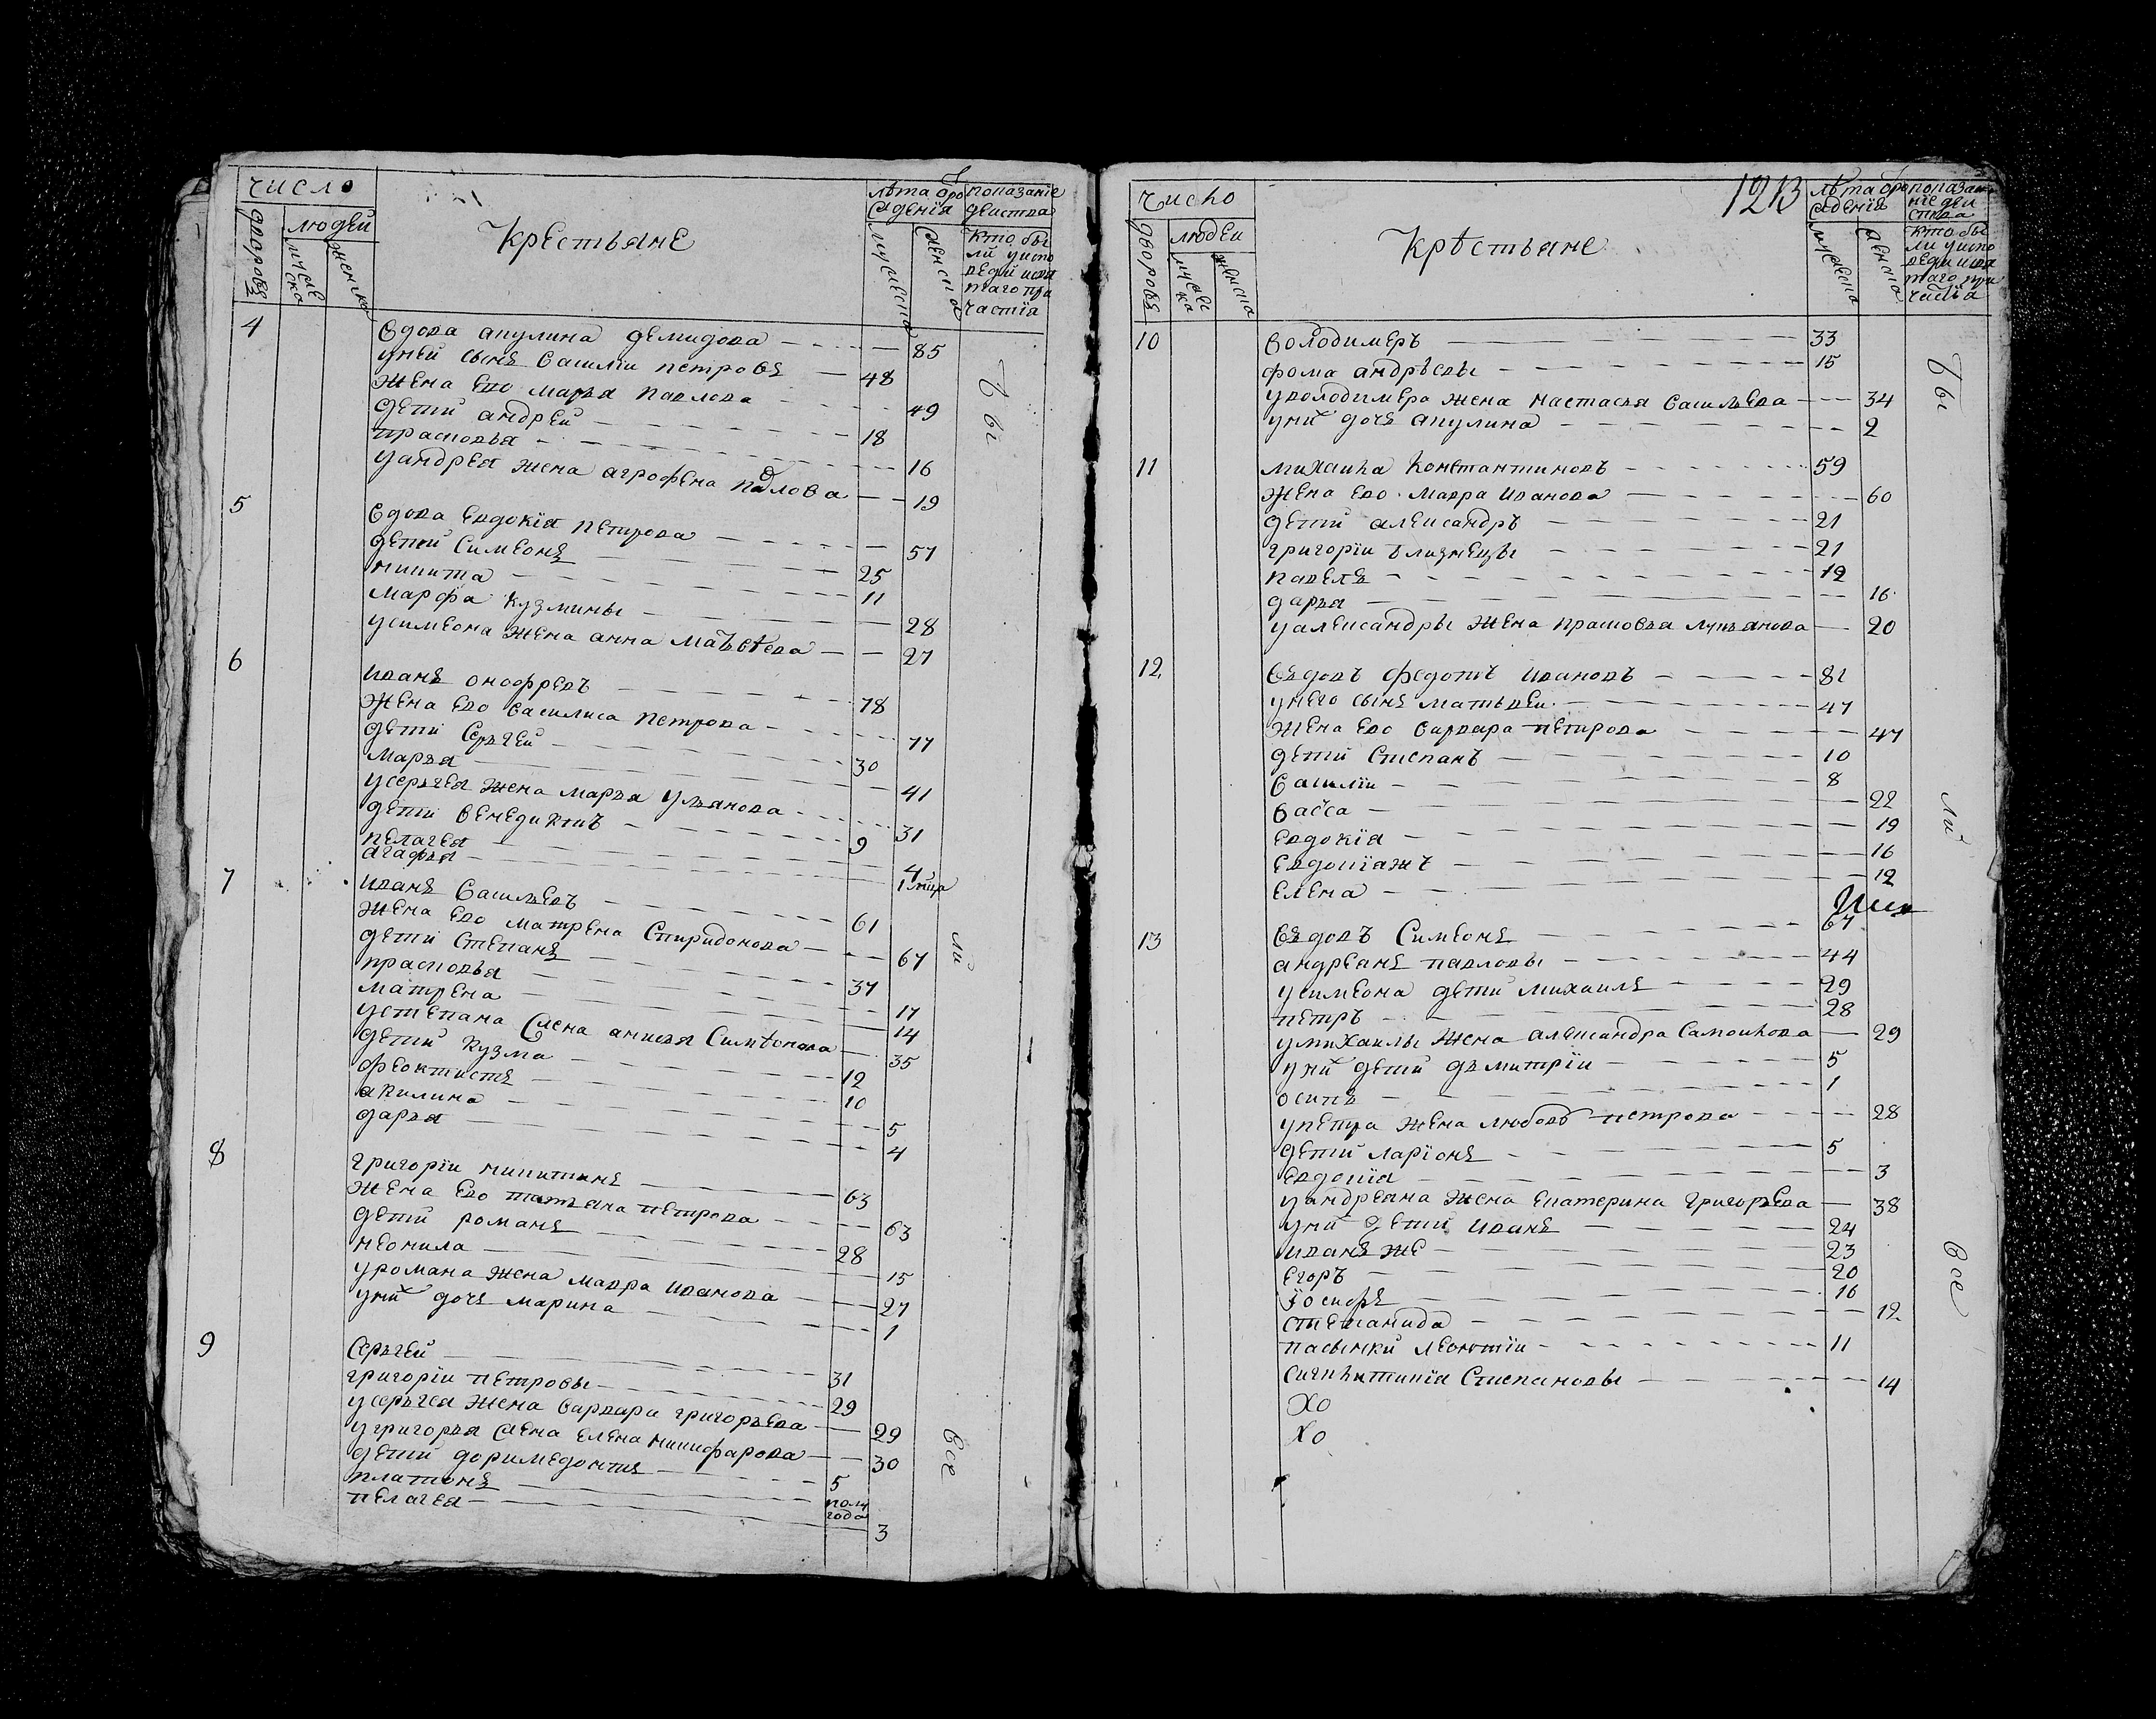 число
лѣта брожденїя
показанїе действа
дворовъ
людей
мужеска
женска
Крестьяне
мужеска
женска
кто бы
ли у испо
веди и свя
таго при
частїя
4
вдова акулина демидова 85
у ней сынъ василїи петровъ 48
жена ево марья павлова 49
дети андрей 18
прасковья 16
у андрея жена агрофена павлова 19
5
вдова евдокїя петрова 57
дети симеонъ 25
никита 11
марфа кузмины 28
у симеона жена анна матвѣева 27
6
иванъ онофревъ 78
жена ево василиса петрова 77
дети сергей 30
марья 41
у сергея жена марья ульянова 31
дети венедиктъ 9
пелагея 4
агафья 1 мца
7
иванъ васильевъ 61
жена ево матрена спиридонова 67
дети степанъ 37
прасковья 17
матрена 14
у степана жена анисья симѣонова 35
дети кузма 12
феоктистъ 10
акилина 5
дарья 4
8
григорїи никитинъ 63
жена ево татьяна петрова 63
дети романъ 28
неонила 15
у романа жена мавра иванова 27
у них дочь марина 1
9
сергей 31
григорїи петровы 29
у сергея жена варвара григорьева 29
у григорья жена елена никифарова 30
дети доримедонтъ 5
платонъ пол года
пелагея 3
бы
ли
все
число
1213
лѣта брожденїя
показанїе действа
дворовъ
людеи
мужеска
женска
Крѣстьяне
мужеска
женска
кто бы
ли у испо
веди и свя
таго при
частїя
10
володимеръ 33
фома андрѣевы 15
у володимера жена настасья васильева 34
у них дочь акулина 2
11
михаила константиновъ 59
жена ево мавра иванова 60
дети александръ 21
григорїи близнецы 21
павелъ 12
дарья 16
у александры жена прасковья лукьянова 20
12
вдовъ федотъ ивановъ 81
у него сынъ матвѣи 47
жена ево варвара петрова 47
дети степанъ 10
василїи 8
васса 22
евдокїя 19
евдокїяжъ 16
елена 12
13
вдовъ симеонъ 67
андреанъ павловы 44
у симеона дети михаилъ 29
петръ 28
у михаилы жена александра самоилова 29
у них дети дьмитрїи 5
осипъ 1
у петра жена любовь петрова 28
дети ларїонъ 5
евдокїя 3
у андреана жена екатерина григорьева 38
у них дети иванъ 24
иванъ же 23
егоръ 20
їосифъ 16
степанида 12
пасынки леонтїи 11
сигклитикїя степановы 14
Хо
Хо
бы
ли
все